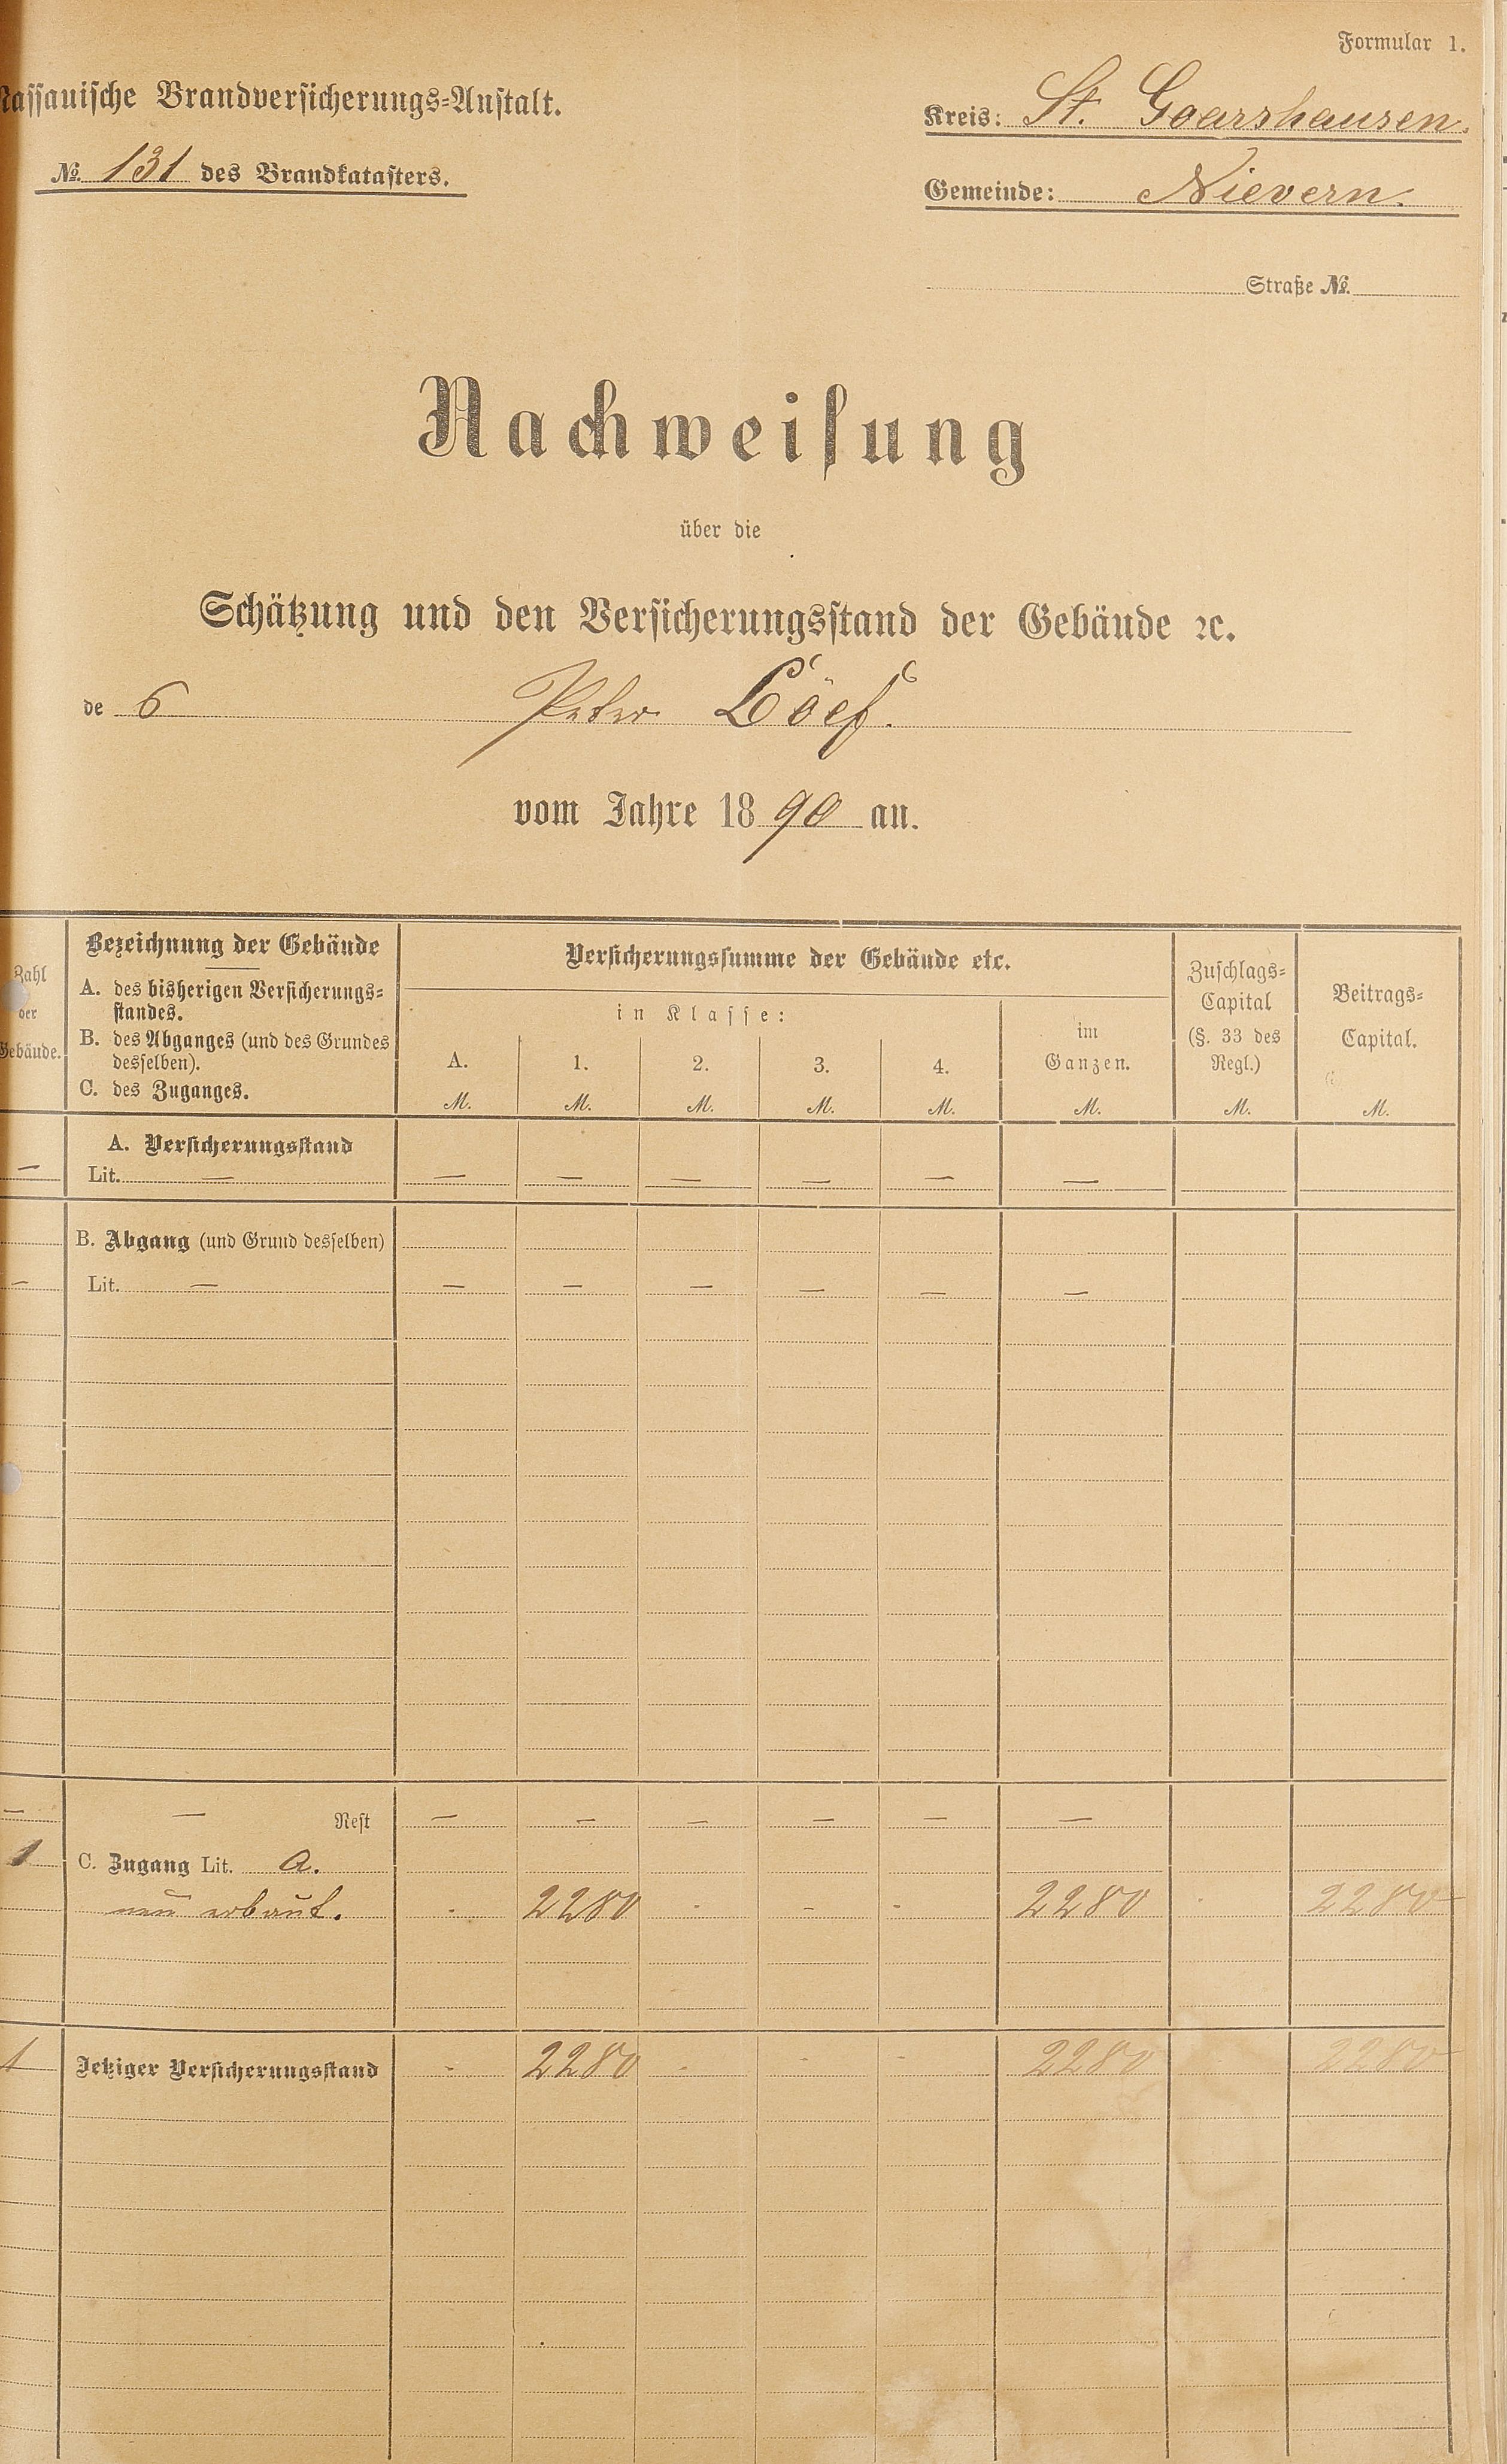 Formular 1.
Nassauische Brandversicherungs-Anstalt.
Kreis: St. Goarshausen.
№ 131 des Brandkatasters.
Gemeinde: Nievern.
Straße №
Nachweisung
über die
Schätzung und den Versicherungsstand der Gebäude ꝛc.
de s Peter Löef.
vom Jahre 1890 an.
Zahl der Gebäude.
Bezeichnung der Gebäude
A. des bisherigen Versicherungs-
standes.
B. des Abganges (und des Grundes
desselben).
C. des Zuganges.
Versicherungssumme der Gebäude etc.
in Klasse:
A. 1. 2. 3. 4.
im
Ganzen.
Zuschlags-
Capital
(§. 33 des
Regl.)
Beitrags-
Capital.
M. M. M. M. M. M. M. M.
A. Versicherungsstand
— Lit. — — — — — — —
B. Abgang (und Grund desselben)
— Lit. — — — — — — —
— — Rest — — — — — —
1 C. Zugang Lit. a.
neu erbaut. - 2280 - - - 2280 - 2280
1 Jetziger Versicherungsstand - 2280 - - - 2280 - 2280